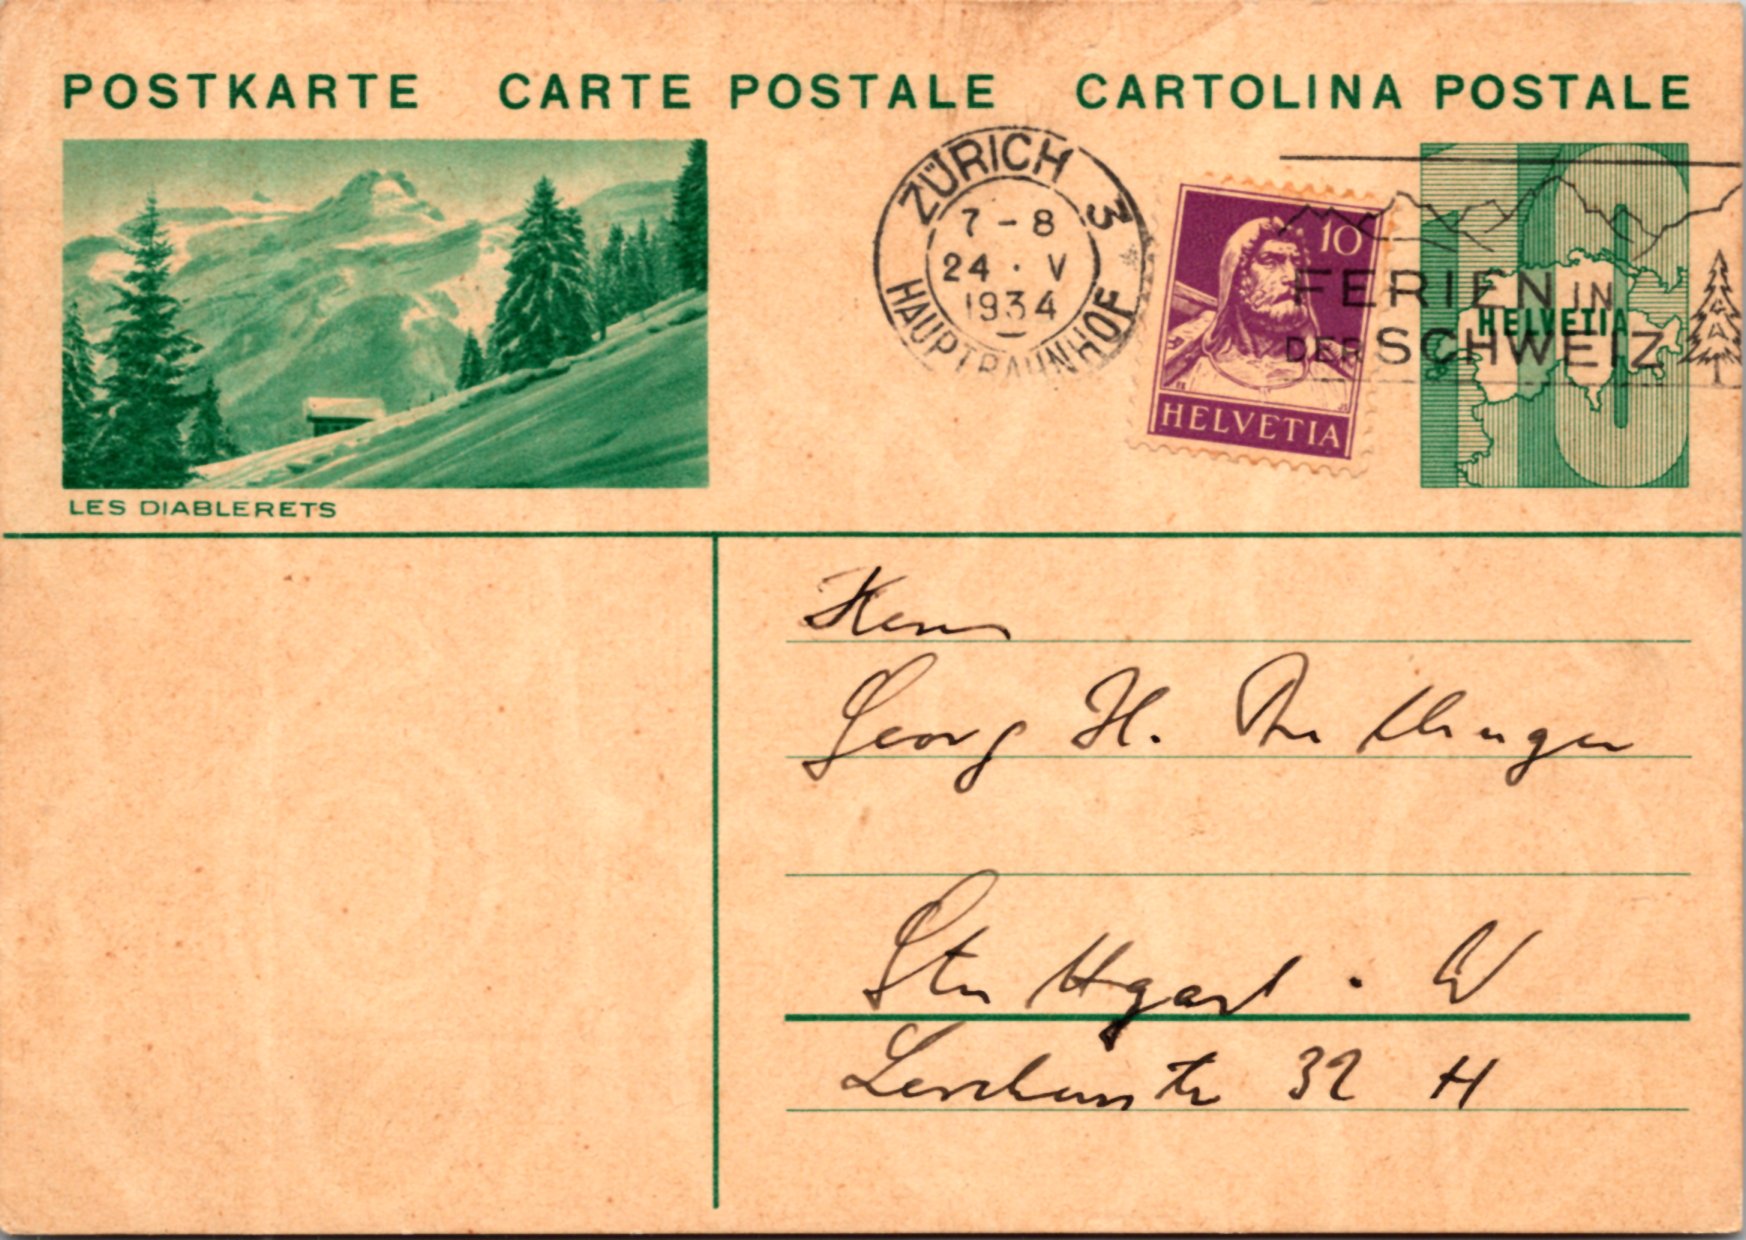 POSTKARTE CARTE POSTALE CARTOLINA POSTALE
ZÜRICH 3
7-8
24 · V
1934
HAUPTBAHNHOF
10
HELVETIA
FERIEN IN
DER SCHWEIZ
HELVETIA
LES DIABLERETS
Herrn
Georg H.
Stuttgart · W
Lerchenstr 32 H